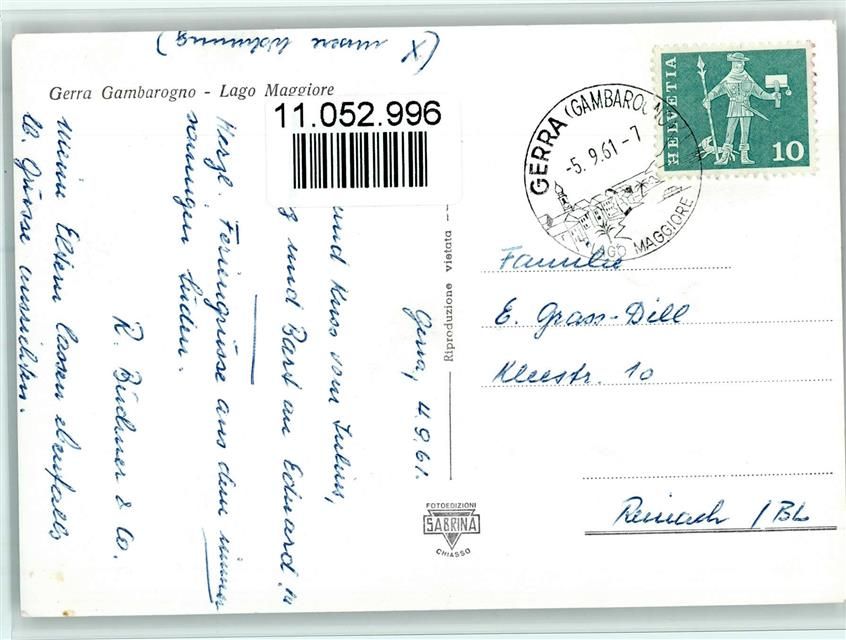 (x unsere Wohnung)
Gerra Gambarogno - Lago Maggiore
11.052.996
Gerra, 4.9.61.
und Kuss vom Julius,
und Bart an Eduard.
Herzl. Feriengrüsse aus dem immer
sonnigen Süden.
R. Büchner & Co.
Meine Eltern lassen ebenfalls
lb. Grüsse ausrichten.
Riproduzione vietata
FOTOEDIZIONI
SABRINA
CHIASSO
GERRA (GAMBAROGNO)
-5. 9.61-7
LAGO MAGGIORE
HELVETIA
10
Familie
E. Grass-Dill
Kleestr. 10
Reinach / BL